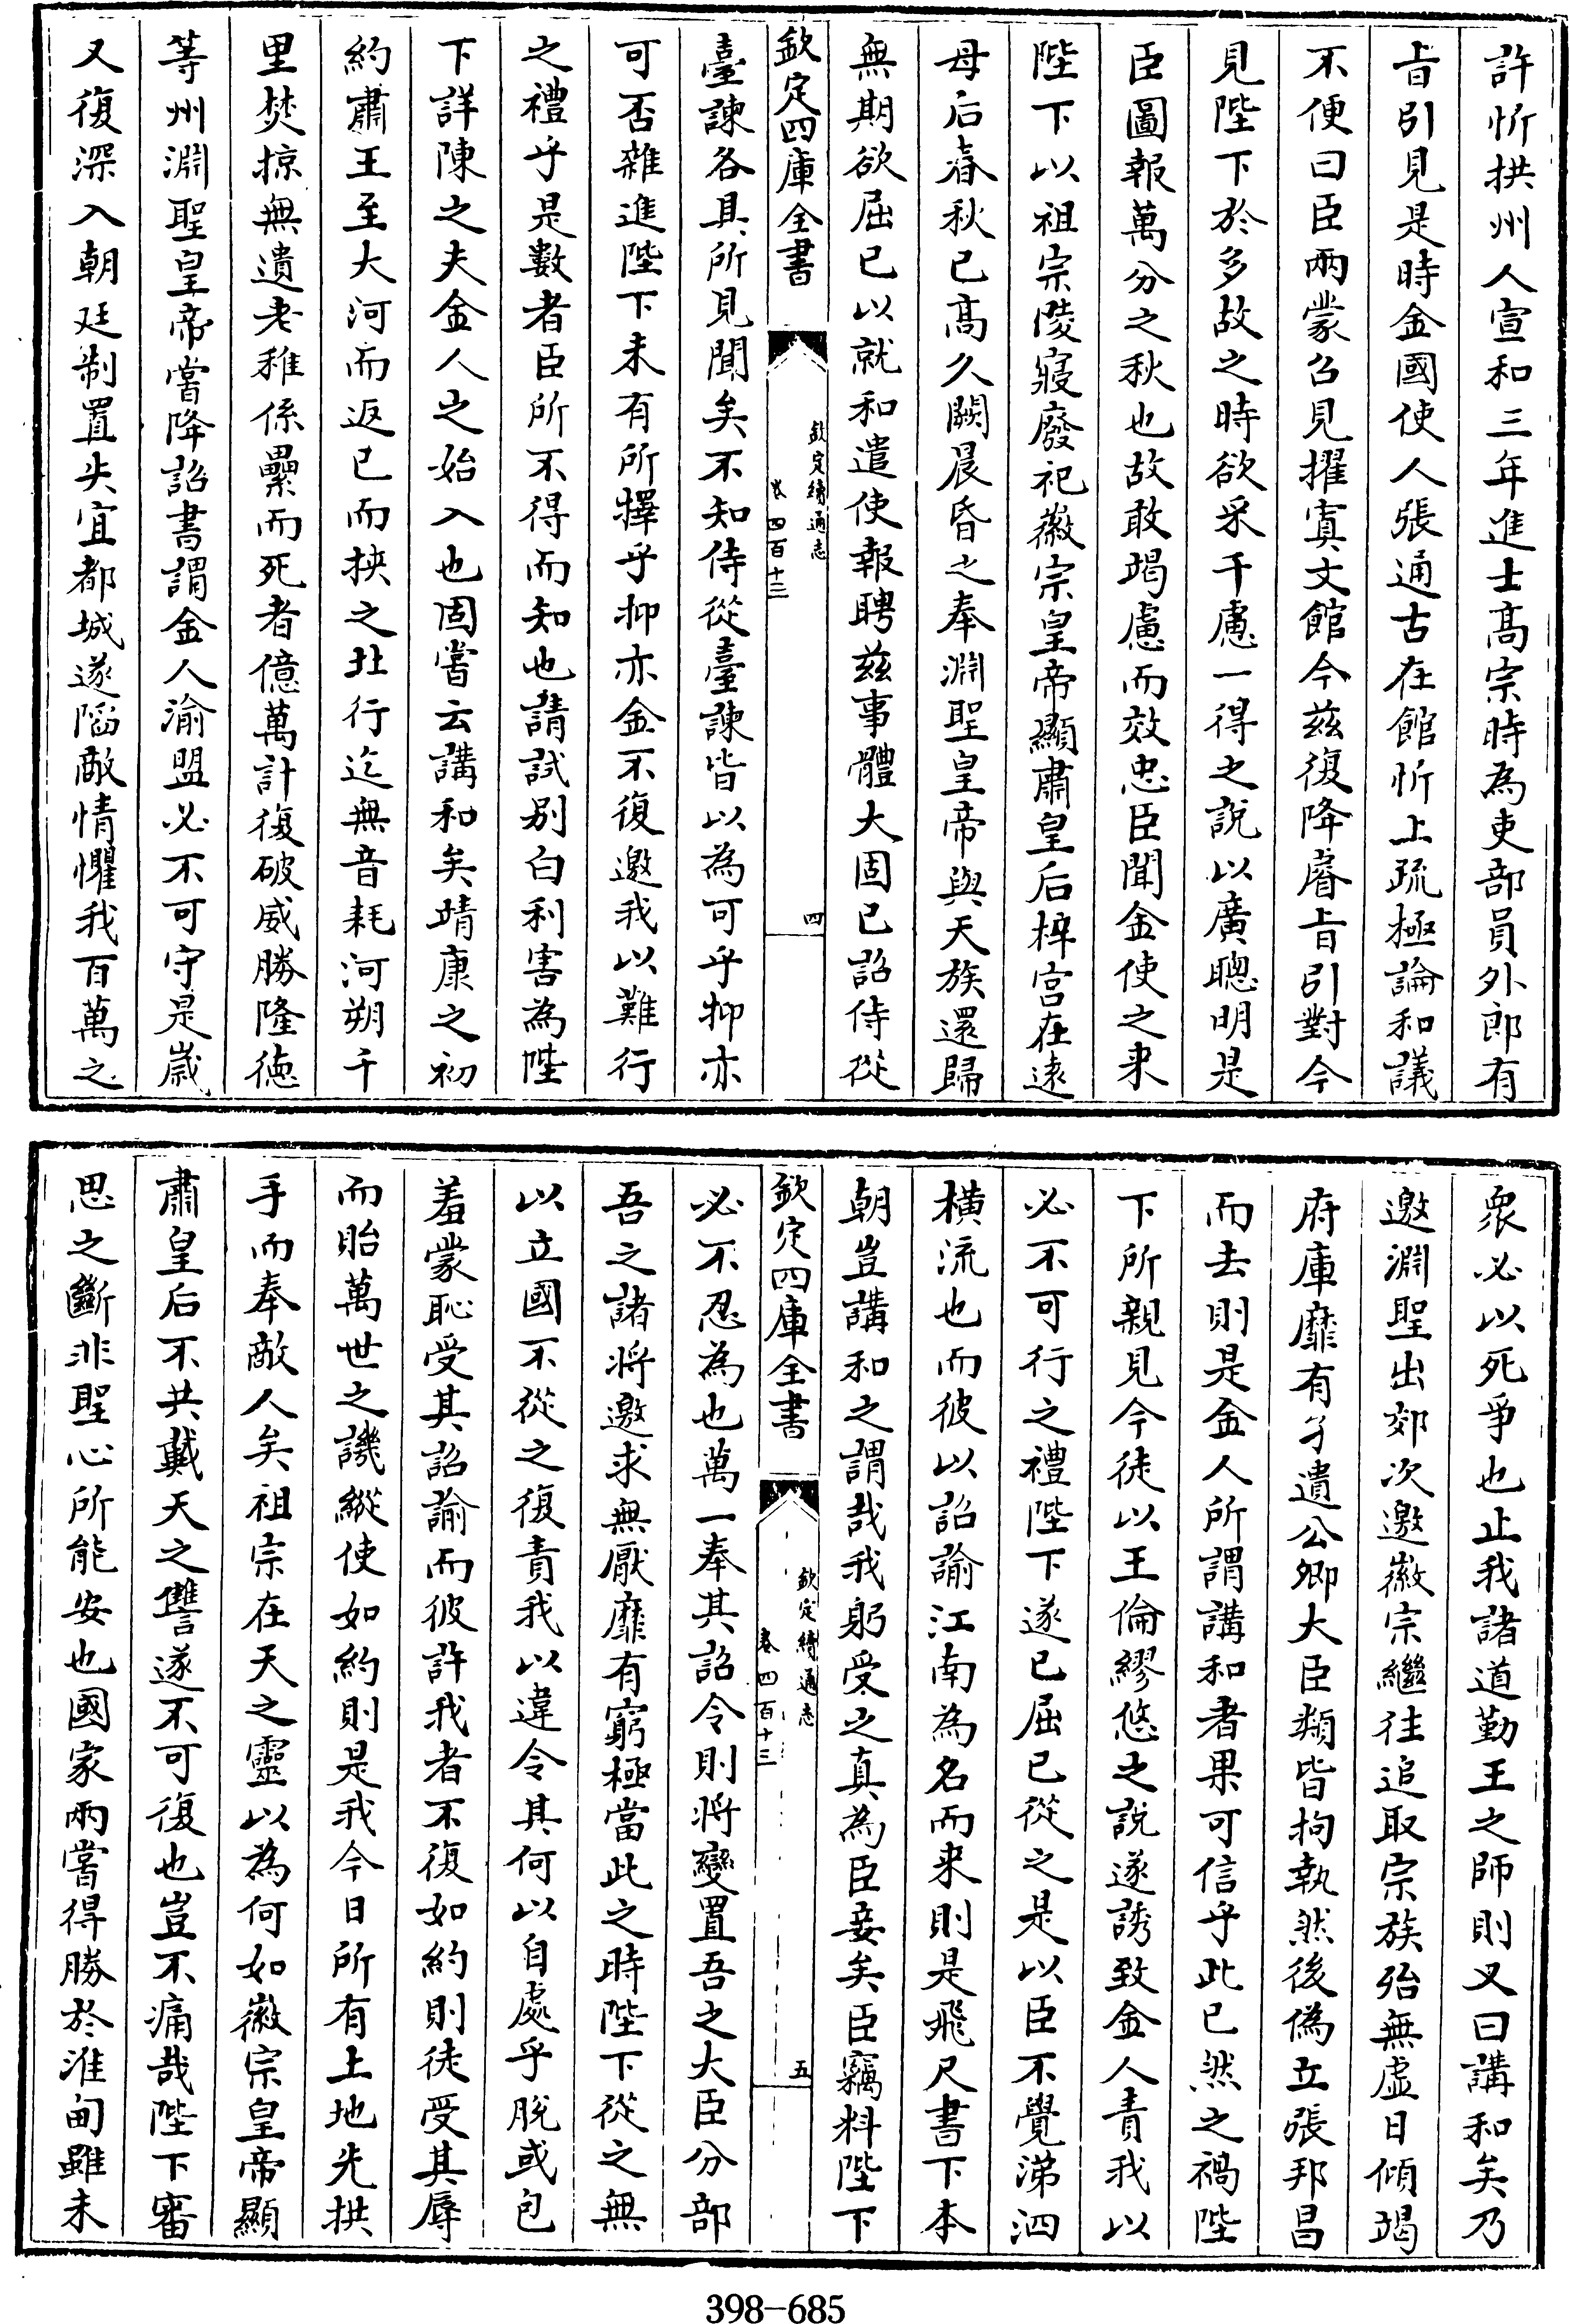 許忻拱州人宣和三年進士髙宗時為吏部員外郎有
㫖引見是時金國使人張通古在館忻上疏極論和議
不便曰臣兩蒙召見擢寘文館今兹復降睿㫖引對今
見陛下於多故之時欲采千慮一得之說以廣聰明是
臣圖報萬分之秋也故敢竭慮而效忠臣聞金使之来
陛下以祖宗陵寢廢祀徽宗皇帝顯肅皇后梓宫在遠
母后春秋已髙久闕晨昏之奉淵聖皇帝與天族還歸
無期欲屈已以就和遣使報聘兹事體大固已詔侍從
欽定四庫全書
欽定續通志
卷四百十三
四
臺諫各具所見聞矣不知侍從臺諫皆以為可乎抑亦
可否雜進陛下未有所擇乎抑亦金不復邀我以難行
之禮乎是數者臣所不得而知也請試别白利害為陛
下詳陳之夫金人之始入也固嘗云講和矣靖康之初
約肅王至大河而返已而挾之北行迄無音耗河朔千
里焚掠無遺老稚係纍而死者億萬計復破威勝隆德
等州淵聖皇帝嘗降詔書謂金人渝盟必不可守是嵗
又復深入朝廷制置失宜都城遂陷敵情懼我百萬之
衆必以死爭也止我諸道勤王之師則又曰講和矣乃
邀淵聖出郊次邀徽宗繼往追取宗族殆無虚日傾竭
府庫靡有孑遺公卿大臣類皆拘執然後偽立張邦昌
而去則是金人所謂講和者果可信乎此已然之禍陛
下所親見今徒以王倫繆悠之說遂誘致金人責我以
必不可行之禮陛下遂已屈已從之是以臣不覺涕泗
橫流也而彼以詔諭江南為名而来則是飛尺書下本
朝豈講和之謂哉我躬受之真為臣妾矣臣竊料陛下
欽定四庫全書
欽定續通志
卷四百十三
五
必不忍為也萬一奉其詔令則將變置吾之大臣分部
吾之諸將邀求無厭靡有窮極當此之時陛下從之無
以立國不從之復責我以違令其何以自處乎脫或包
羞蒙恥受其詔諭而彼許我者不復如約則徒受其辱
而貽萬世之譏縱使如約則是我今日所有土地先拱
手而奉敵人矣祖宗在天之靈以為何如徽宗皇帝顯
肅皇后不共戴天之讐遂不可復也豈不痛哉陛下審
思之斷非聖心所能安也國家兩嘗得勝於淮甸雖未
398-685